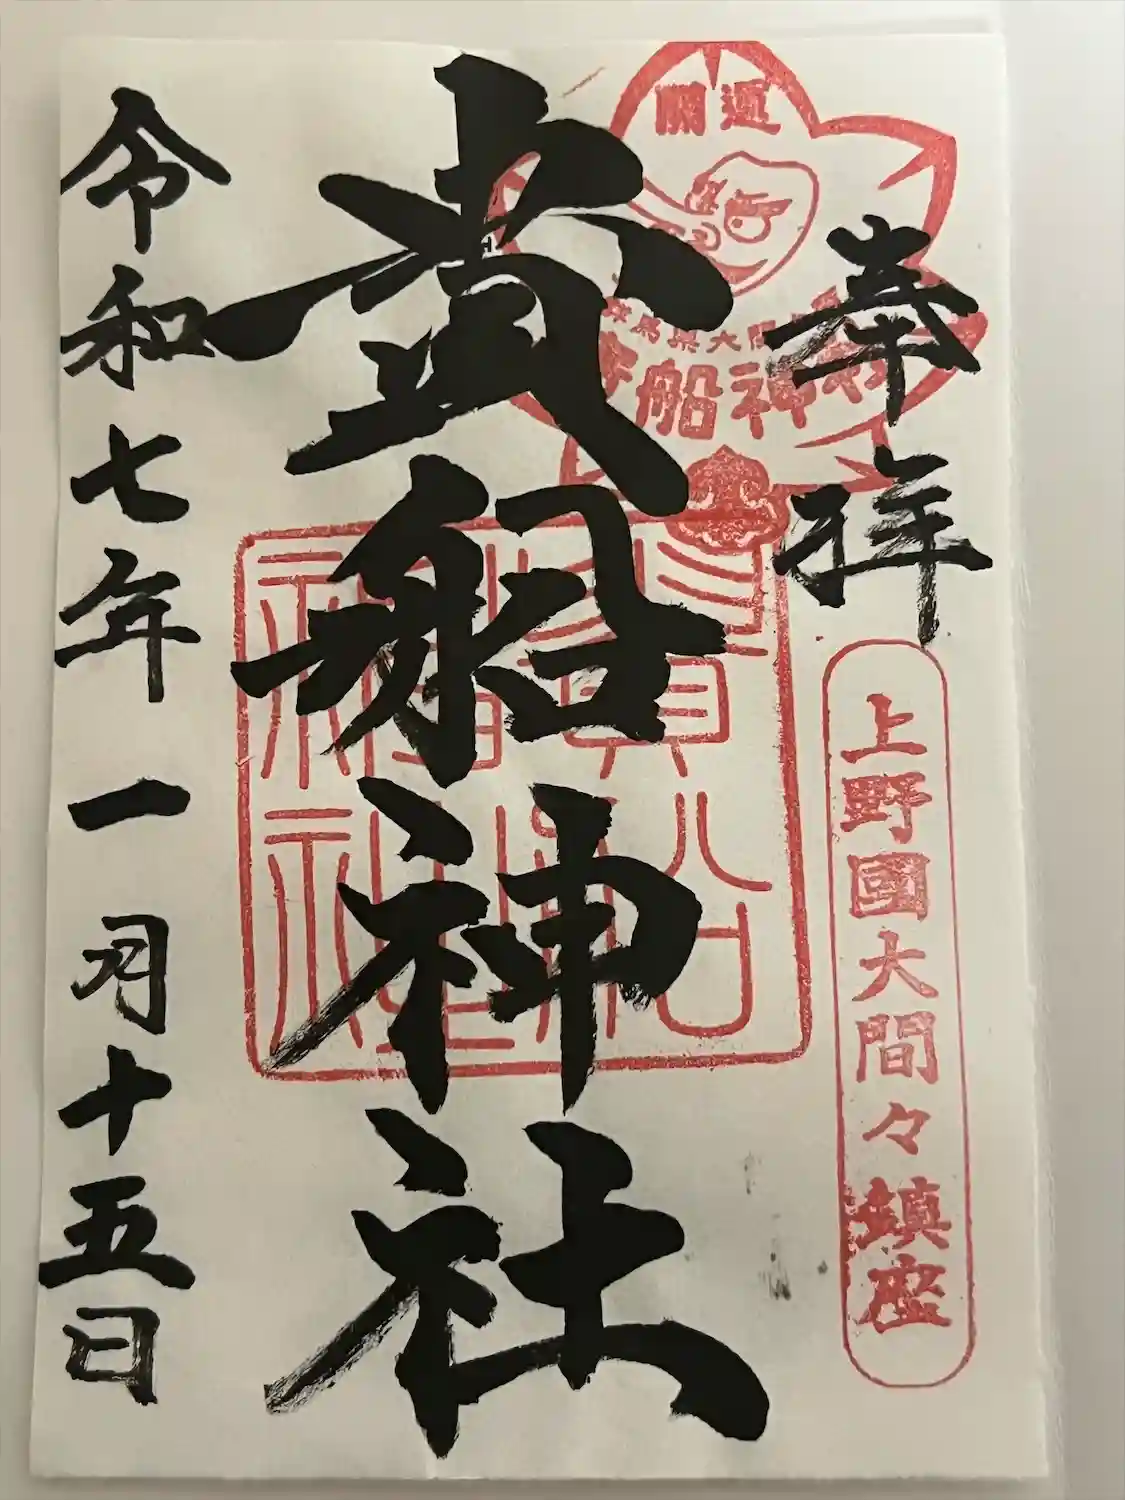 開運
群馬県大間々
貴船神社
奉拝
上野國大間々鎮座
貴船神社
令和七年一月十五日